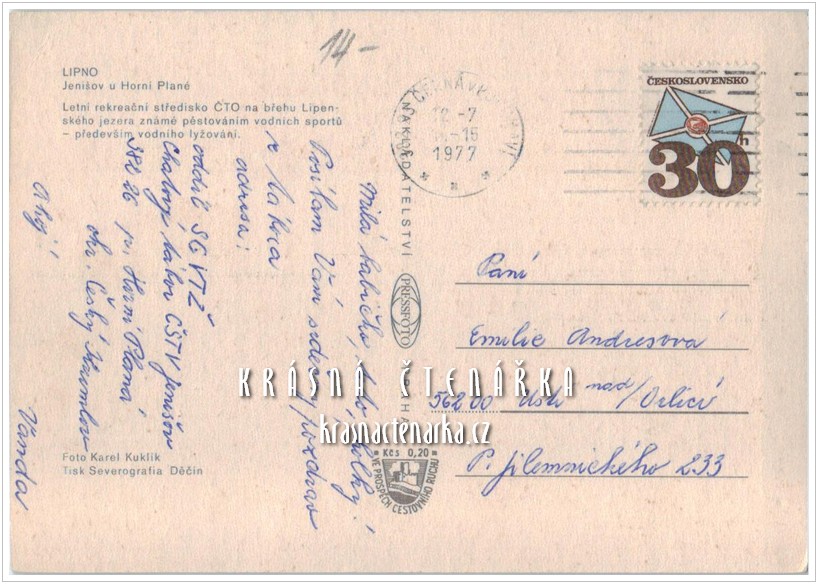 14-
LIPNO
Jenišov u Horní Plané
Letní rekreační středisko ČTO na břehu Lipen-
ského jezera známé pěstováním vodních sportů
– především vodního lyžování.
Milá babičko,
Posílám Vám srdečný pozdrav
z tábora
adresa:
oddíl SG VTŽ
Chatový tábor ČSTV Jenišov
382 26 p. Horní Planá
okr. Český Krumlov
Ahoj!
Vanda
Foto Karel Kuklík
Tisk Severografia Děčín
NAKLADATELSTVÍ
PRESSFOTO
ČERNÁ V
12.-7
-15
1977
Kčs 0,20
VE PROSPĚCH CESTOVNÍHO RUCHU
ČESKOSLOVENSKO
30
h
Paní
Emilie Andresová
562 00 Ústí nad/Orlicí
P. Jilemnického 233
KRÁSNÁ ČTENÁŘKA
krasnactenarka.cz